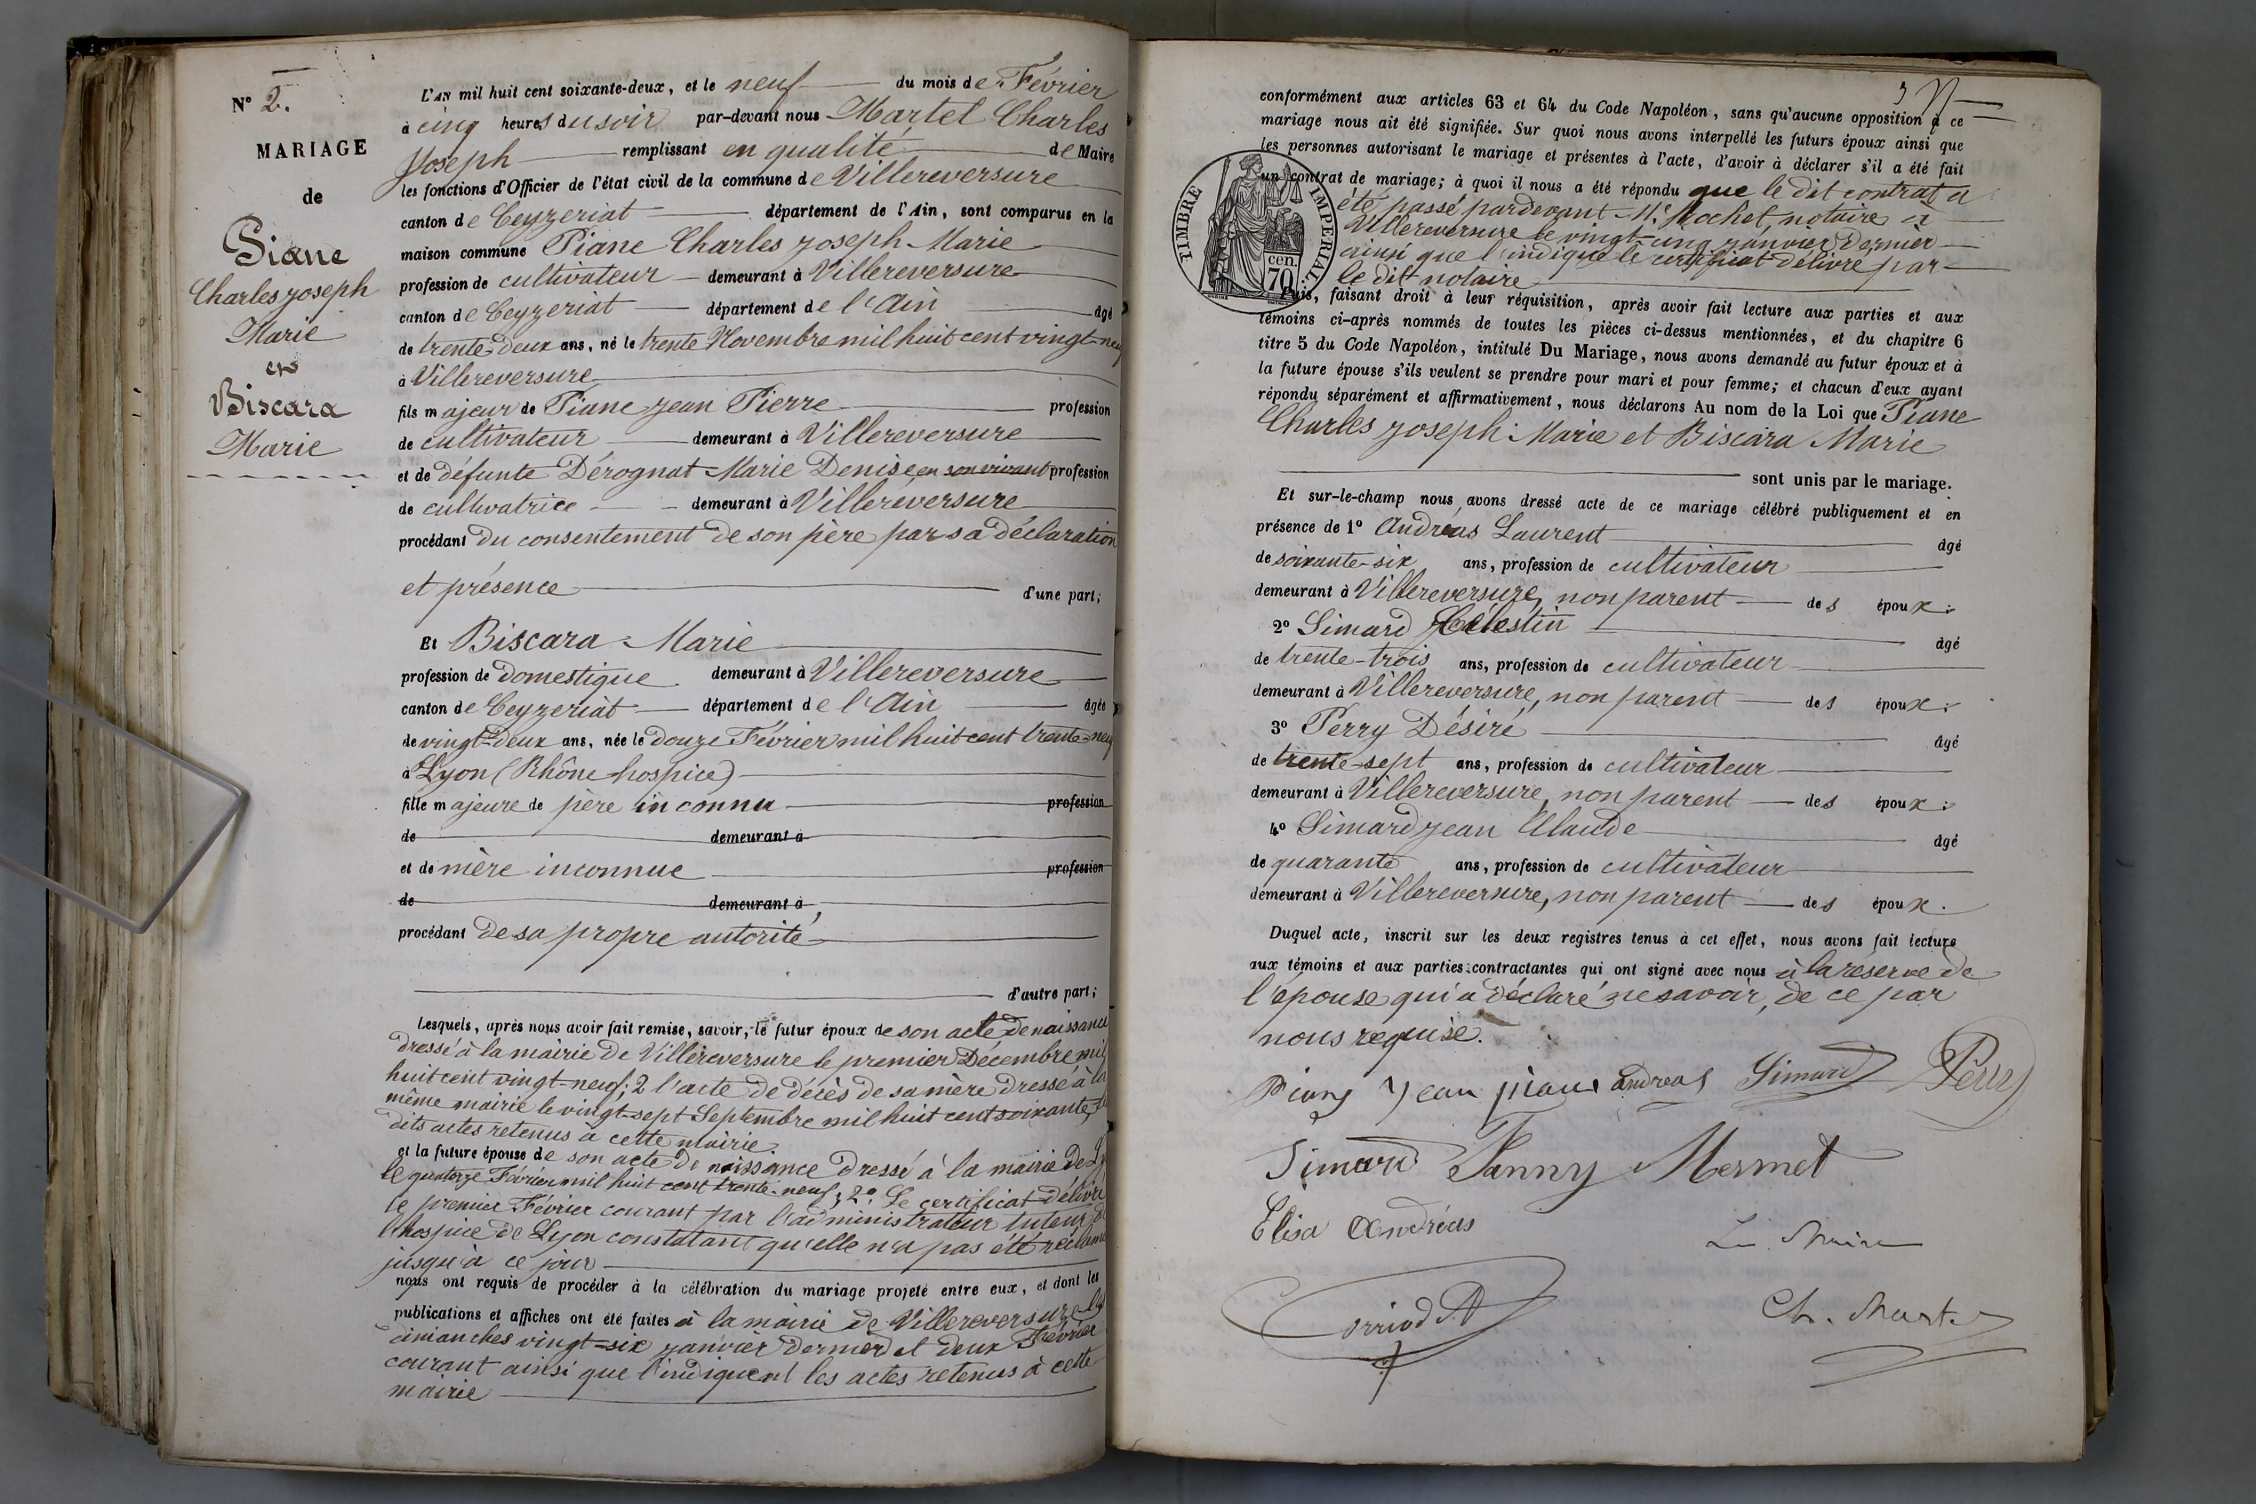 N° 2.
MARIAGE
de
Piane
Charles Joseph
Marie
et
Biscara
Marie
L'AN mil huit cent soixante-deux, et le neuf du mois de Février
à cinq heures du soir par-devant nous Martel Charles
Joseph remplissant en qualité de Maire
les fonctions d'Officier de l'état civil de la commune de Villereversure
canton de Ceyzeriat département de l'Ain, sont comparus en la
maison commune Piane Charles Joseph Marie
profession de cultivateur demeurant à Villereversure
canton de Ceyzeriat département de l'Ain âgé
de trente-deux ans, né le trente Novembre mil huit cent vingt-neuf
à Villereversure
fils majeur de Piane Jean Pierre profession
de cultivateur demeurant à Villereversure
et de défunte Dérognat Marie Denise en son vivant profession
de cultivatrice demeurant à Villereversure
procédant du consentement de son père par sa déclaration
et présence d'une part;
Et Biscara Marie
profession de domestique demeurant à Villereversure
canton de Ceyzeriat département de l'Ain âgée
de vingt-deux ans, née le douze Février mil huit cent trente-neuf
à Lyon (Rhône hospice)
fille majeure de père inconnu profession
de demeurant à
et de mère inconnue profession
de demeurant à
procédant de sa propre autorité
d'autre part;
Lesquels, après nous avoir fait remise, savoir, le futur époux de son acte de naissance
dressé à la mairie de Villereversure le premier Décembre mil
huit cent vingt-neuf; 2 l'acte de décès de sa mère dressé à la
même mairie le vingt-sept Septembre mil huit cent soixante,
dits actes retenus à cette mairie.
et la future épouse de son acte de naissance dressé à la mairie de
le quatorze Février mil huit cent trente-neuf; 2° Le certificat délivré
le premier Février courant par l'administrateur tuteur de
l'hospice de Lyon constatant qu'elle n'a pas été réclamée
jusqu'à ce jour
nous ont requis de procéder à la célébration du mariage projeté entre eux, et dont les
publications et affiches ont été faites à la mairie de Villereversure les
dimanches vingt-six janvier dernier et deux Février
courant ainsi que l'indiquent les actes retenus à cette
mairie
conformément aux articles 63 et 64 du Code Napoléon, sans qu'aucune opposition à ce
mariage nous ait été signifiée. Sur quoi nous avons interpellé les futurs époux ainsi que
les personnes autorisant le mariage et présentes à l'acte, d'avoir à déclarer s'il a été fait
un contrat de mariage; à quoi il nous a été répondu que le dit contrat a
été passé pardevant Me Rochet, notaire à
Villereversure le vingt-cinq janvier dernier
ainsi que l'indique le certificat délivré par
le dit notaire
TIMBRE IMPERIAL
70 cen.
Puis, faisant droit à leur réquisition, après avoir fait lecture aux parties et aux
témoins ci-après nommés de toutes les pièces ci-dessus mentionnées, et du chapitre 6
titre 5 du Code Napoléon, intitulé Du Mariage, nous avons demandé au futur époux et à
la future épouse s'ils veulent se prendre pour mari et pour femme; et chacun d'eux ayant
répondu séparément et affirmativement, nous déclarons Au nom de la Loi que Piane
Charles Joseph Marie et Biscara Marie
sont unis par le mariage.
Et sur-le-champ nous avons dressé acte de ce mariage célébré publiquement et en
présence de 1° Andréas Laurent âgé
de soixante-six ans, profession de cultivateur
demeurant à Villereversure, non parent des époux.
2° Simard Célestin âgé
de trente-trois ans, profession de cultivateur
demeurant à Villereversure, non parent des époux.
3° Perry Désiré âgé
de trente-sept ans, profession de cultivateur
demeurant à Villereversure, non parent des époux.
4° Simard Jean Claude âgé
de quarante ans, profession de cultivateur
demeurant à Villereversure, non parent des époux.
Duquel acte, inscrit sur les deux registres tenus à cet effet, nous avons fait lecture
aux témoins et aux parties contractantes qui ont signé avec nous à la réserve de
l'épouse qui a déclaré ne savoir, de ce par
nous requise.
Jean andreas Simard Perry
Simard Fanny Mermet
Elisa Andréas
Le Maire
Ch. Martel